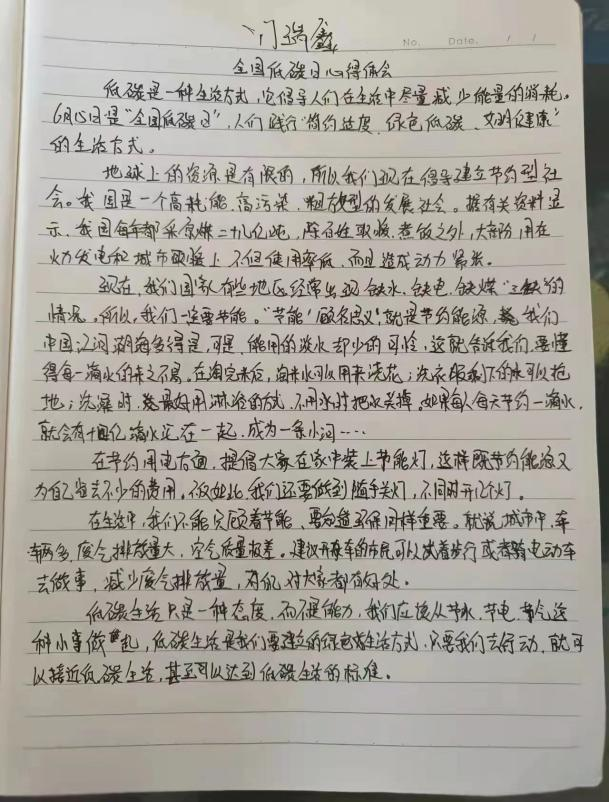 门瑞鑫
No.    Date.    /  /
全国低碳日心得体会
低碳是一种生活方式，它倡导人们在生活中尽量减少能量的消耗。
6月15日是“全国低碳日”，人们践行“简约适度、绿色低碳、文明健康”
的生活方式。
地球上的资源是有限的，所以我们现在倡导建立节约型社
会。我国是一个高耗能、高污染、粗放型的发展社会。据有关资料显
示，我国每年都采原煤二十几亿吨，除百姓取暖、煮饭之外，大部份用在
火力发电和城市取暖上，不但使用率低，而且造成动力紧张。
现在，我们国家有些地区经常出现缺水、缺电、缺煤“三缺”的
情况。所以，我们一定要节能。“节能”顾名思义就是节约能源，我们
中国江河湖海多得是，可是，能用的淡水却少的可怜，这就告诉我们，要懂
得每一滴水的来之不易。在淘完米后，淘米水可以用来浇花；洗衣服剩下的水可以拖
地；洗澡时，最好用淋浴的方式，不用水时把水关掉。如果每人每天节约一滴水，
就会有十四亿滴水汇在一起，成为一条小河……
在节约用电方面，提倡大家在家中装上节能灯，这样既节约能源又
为自己省去不少的费用。不仅如此，我们还要做到随手关灯，不同时开几个灯。
在生活中，我们不能只顾着节能，要知道环保同样重要。就说城市中，车
辆多，废气排放量大，空气质量极差。建议开车的市民可以试着步行或者骑电动车
去做事，减少废气排放量，对己、对大家都有好处。
低碳生活只是一种态度，而不是能力，我们应该从节水、节电、节气这
种小事做起，低碳生活是我们要建立的绿色生活方式，只要我们去行动，就可
以接近低碳生活，甚至可以达到低碳生活的标准。